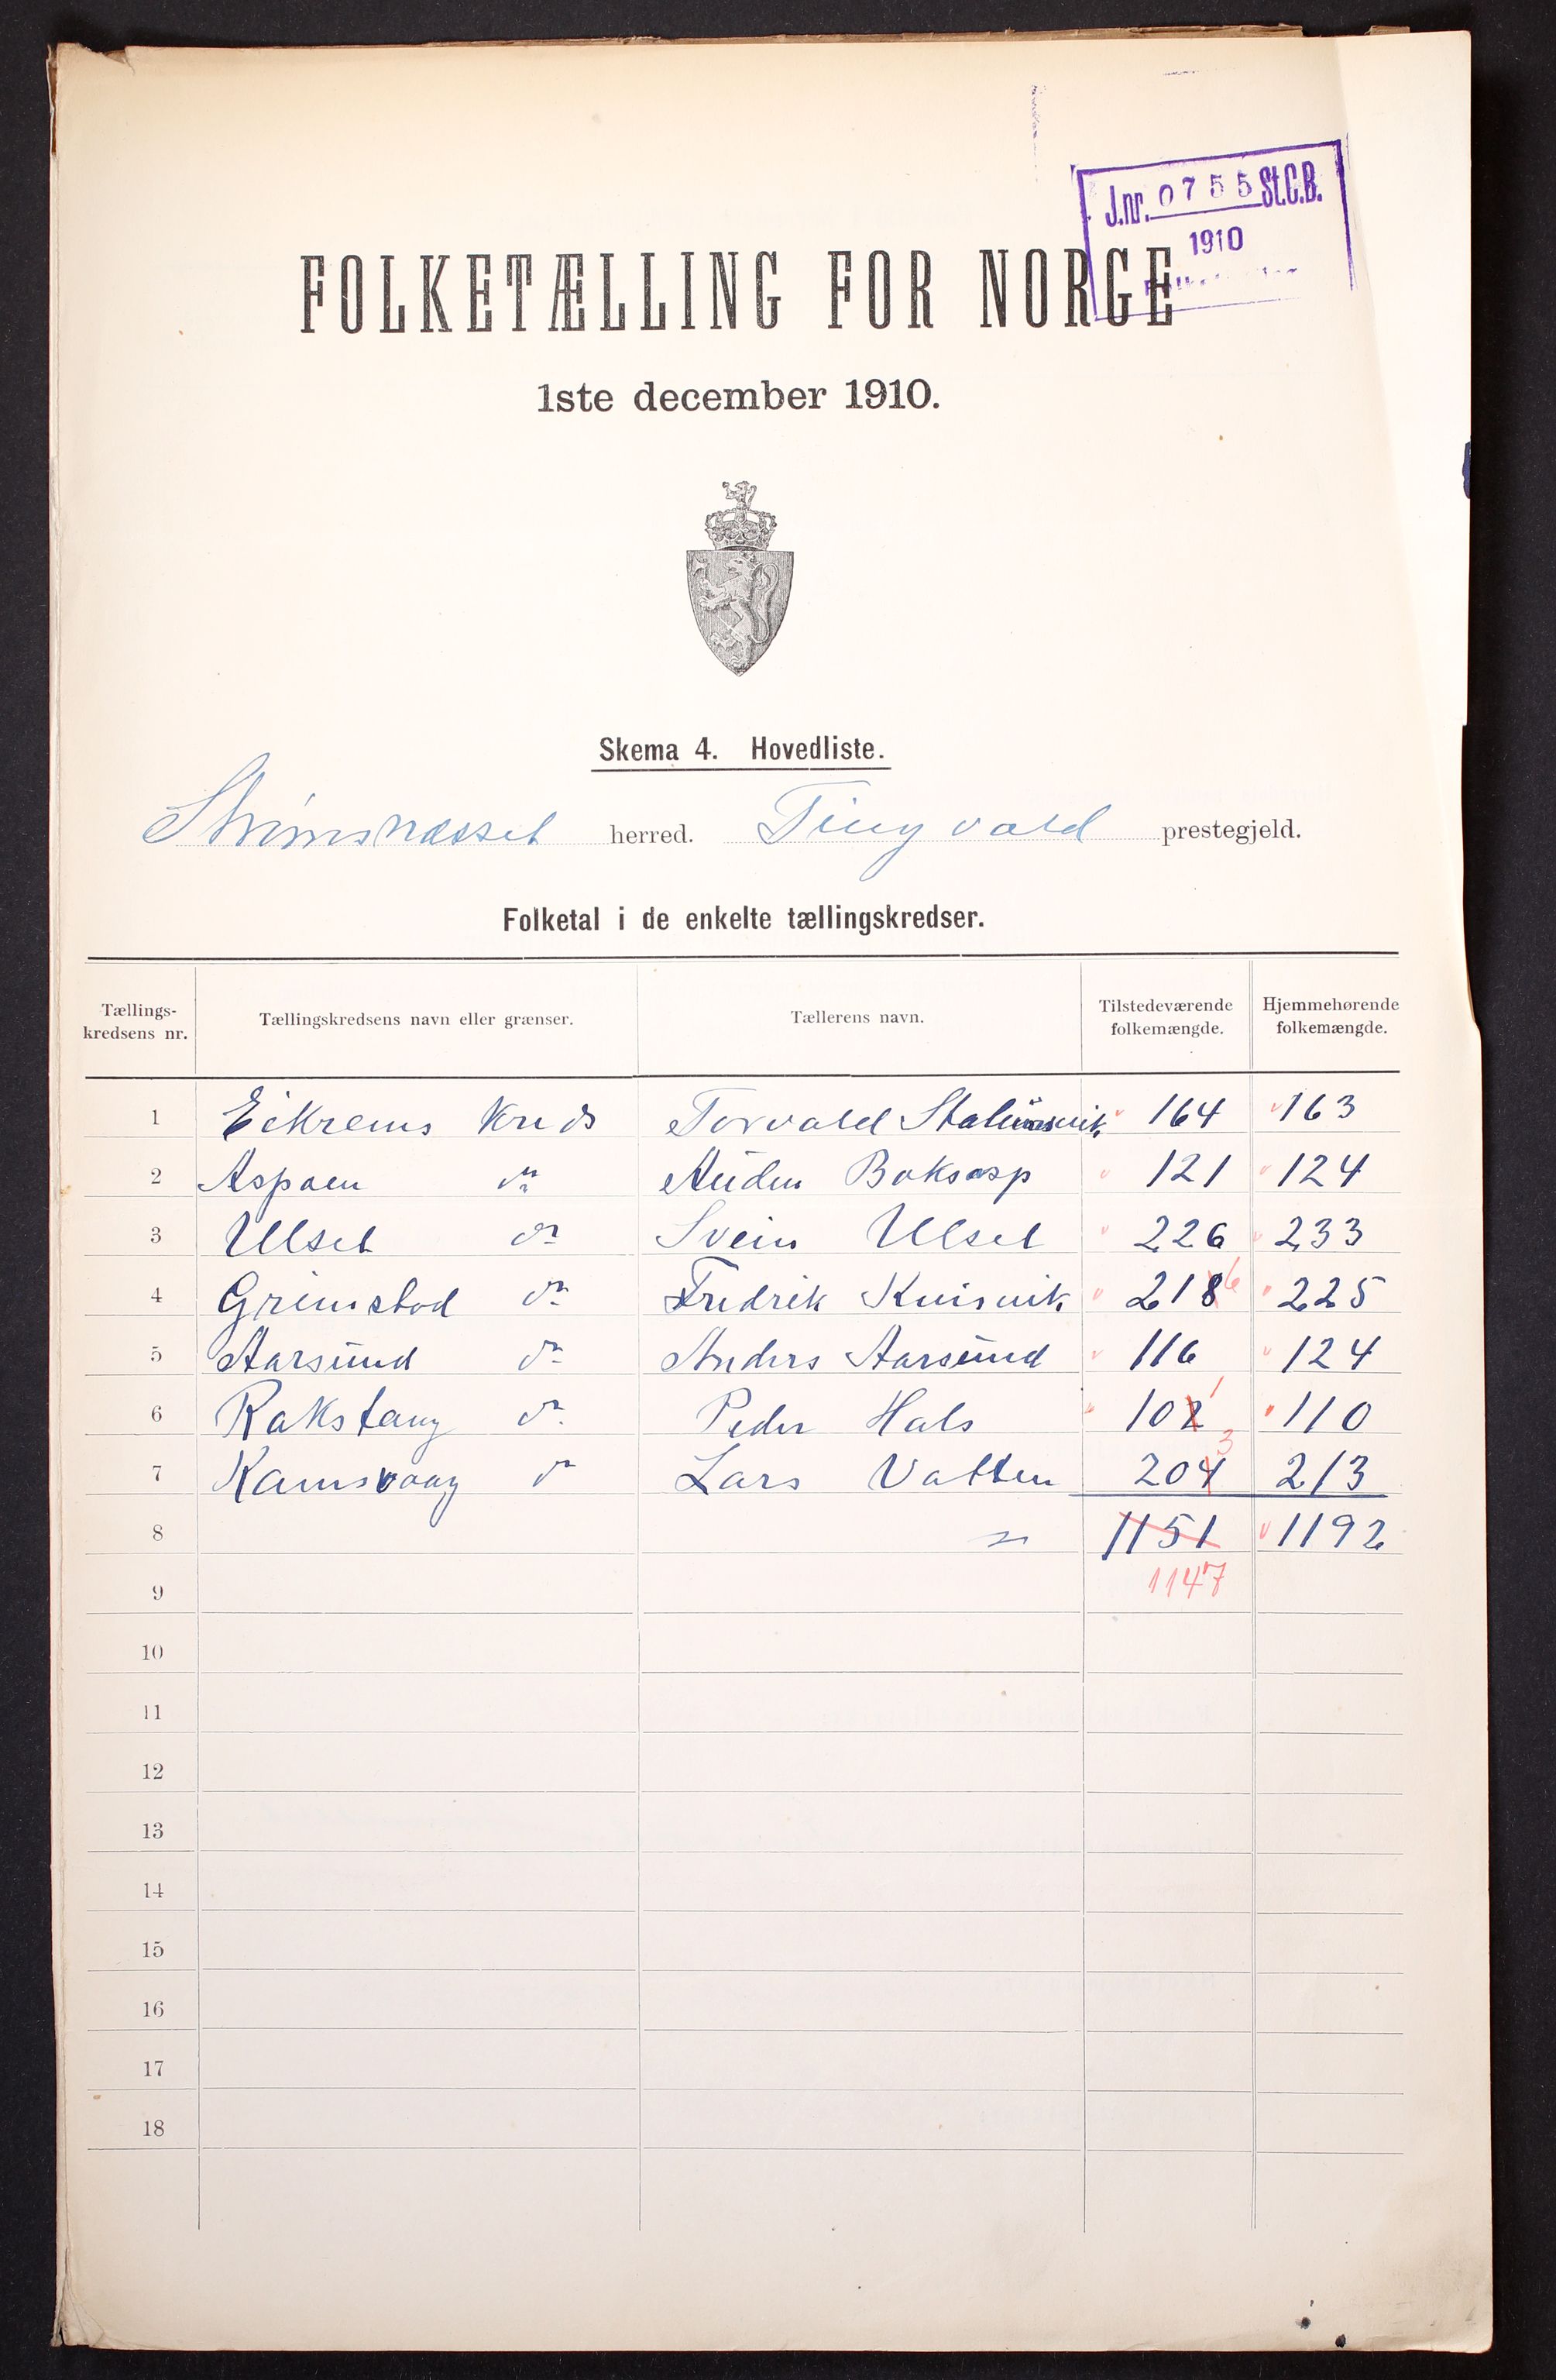 J.nr. 0755 St.C.B.
1910
FOLKETÆLLING FOR NORGE
1ste december 1910.
Skema 4. Hovedliste.
Strømsnæsset herred. Tingvold prestegjeld.
Folketal i de enkelte tællingskredser.
Tællings-kredsens nr. Tællingskredsens navn eller grænser. Tællerens navn. Tilstedeværende folkemængde. Hjemmehørende folkemængde.
1 Eikrems Kreds Torvald 164 163
2 Aspøen do Auden Boksasp 121 124
3 Ulset do Svein Ulset 226 233
4 Grimstad do Fredrik 218 6 225
5 Aarsund do Anders Aarsund 116 124
6 Rakstang do Peder Hals 102 1 110
7 Kamsvaag do Lars Vatten 204 3 213
8 1151 1192
9 1147
10
11
12
13
14
15
16
17
18